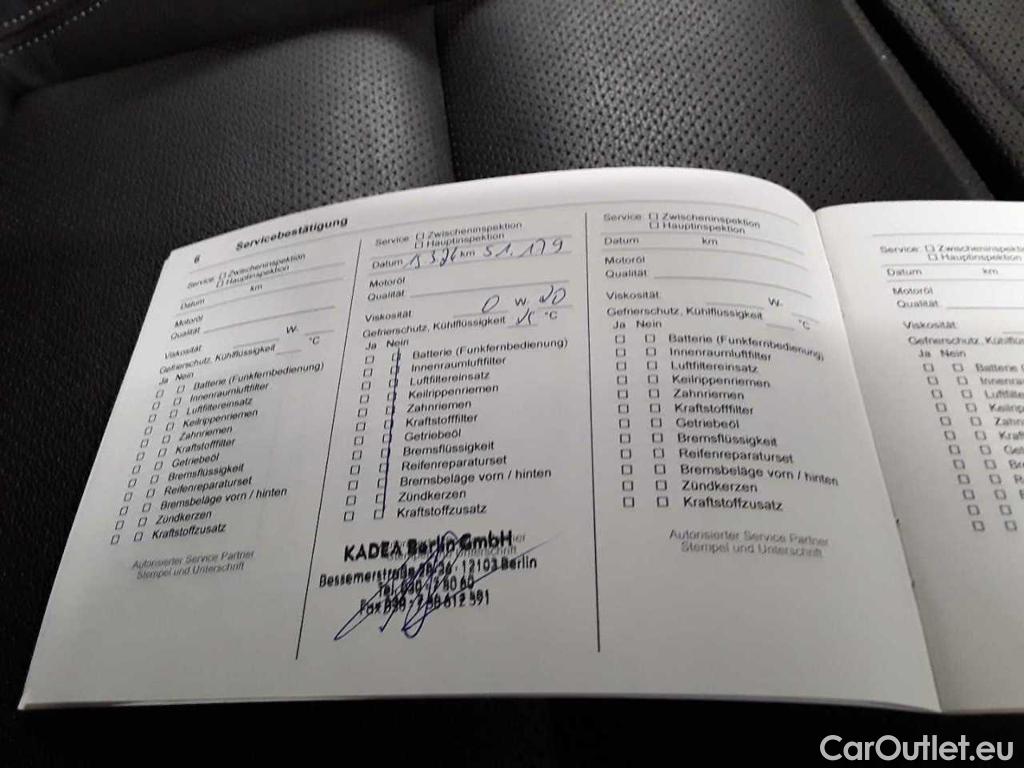 6 Servicebestätigung
Service: ☐ Zwischeninspektion
☐ Hauptinspektion
Datum km
Motoröl
Qualität
Viskosität W-
Gefrierschutz, Kühlflüssigkeit °C
Ja Nein
☐ ☐ Batterie (Funkfernbedienung)
☐ ☐ Innenraumluftfilter
☐ ☐ Luftfiltereinsatz
☐ ☐ Keilrippenriemen
☐ ☐ Zahnriemen
☐ ☐ Kraftstofffilter
☐ ☐ Getriebeöl
☐ ☐ Bremsflüssigkeit
☐ ☐ Reifenreparaturset
☐ ☐ Bremsbeläge vorn / hinten
☐ ☐ Zündkerzen
☐ ☐ Kraftstoffzusatz
Autorisierter Service Partner
Stempel und Unterschrift
Service: ☐ Zwischeninspektion
☐ Hauptinspektion
Datum km 51.179
Motoröl
Qualität
Viskosität: 0 W- 20
Gefrierschutz, Kühlflüssigkeit °C
Ja Nein
☐ ☐ Batterie (Funkfernbedienung)
☐ ☐ Innenraumluftfilter
☐ ☐ Luftfiltereinsatz
☐ ☐ Keilrippenriemen
☐ ☐ Zahnriemen
☐ ☐ Kraftstofffilter
☐ ☐ Getriebeöl
☐ ☐ Bremsflüssigkeit
☐ ☐ Reifenreparaturset
☐ ☐ Bremsbeläge vorn / hinten
☐ ☐ Zündkerzen
☐ ☐ Kraftstoffzusatz
KADEA Berlin GmbH
Bessemerstraße 12103 Berlin
Tel.
Fax
Service: ☐ Zwischeninspektion
☐ Hauptinspektion
Datum km
Motoröl
Qualität
Viskosität: W-
Gefrierschutz, Kühlflüssigkeit °C
Ja Nein
☐ ☐ Batterie (Funkfernbedienung)
☐ ☐ Innenraumluftfilter
☐ ☐ Luftfiltereinsatz
☐ ☐ Keilrippenriemen
☐ ☐ Zahnriemen
☐ ☐ Kraftstofffilter
☐ ☐ Getriebeöl
☐ ☐ Bremsflüssigkeit
☐ ☐ Reifenreparaturset
☐ ☐ Bremsbeläge vorn / hinten
☐ ☐ Zündkerzen
☐ ☐ Kraftstoffzusatz
Autorisierter Service Partner
Stempel und Unterschrift
Service: ☐ Zwischeninspekt
☐ Hauptinspektion
Datum km
Motoröl
Qualität
Viskosität:
Gefrierschutz, Kühlflüss
Ja Nein
☐ ☐ Batterie
☐ ☐ Innenra
☐ ☐ Luftfilte
☐ ☐ Keilrip
☐ ☐ Zahn
☐ ☐ Kraft
☐ ☐ Get
☐ ☐ Bre
☐ ☐ Re
☐ ☐ B
CarOutlet.eu